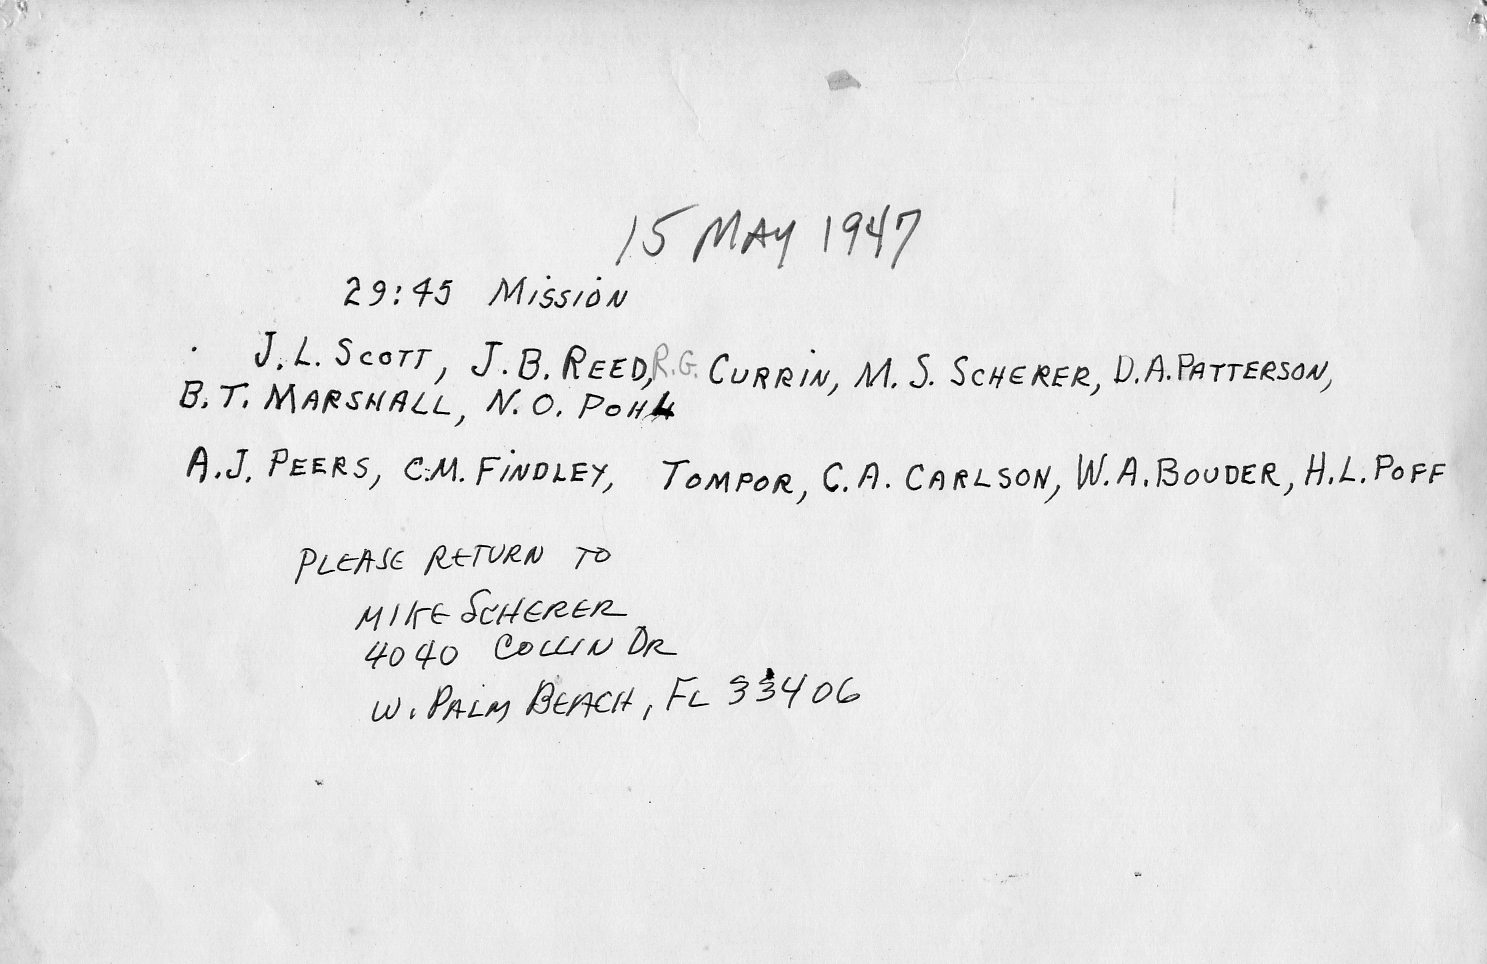 15 MAY 1947
29:45 MISSION
J. L. SCOTT, J. B. REED, R.G. CURRIN, M. S. SCHERER, D. A. PATTERSON,
B. T. MARSHALL, N. O. POHL
A. J. PEERS, C. M. FINDLEY, TOMPOR, C. A. CARLSON, W. A. BOUDER, H. L. POFF
PLEASE RETURN TO
MIKE SCHERER
4040 COLLIN DR
W. PALM BEACH, FL 33406